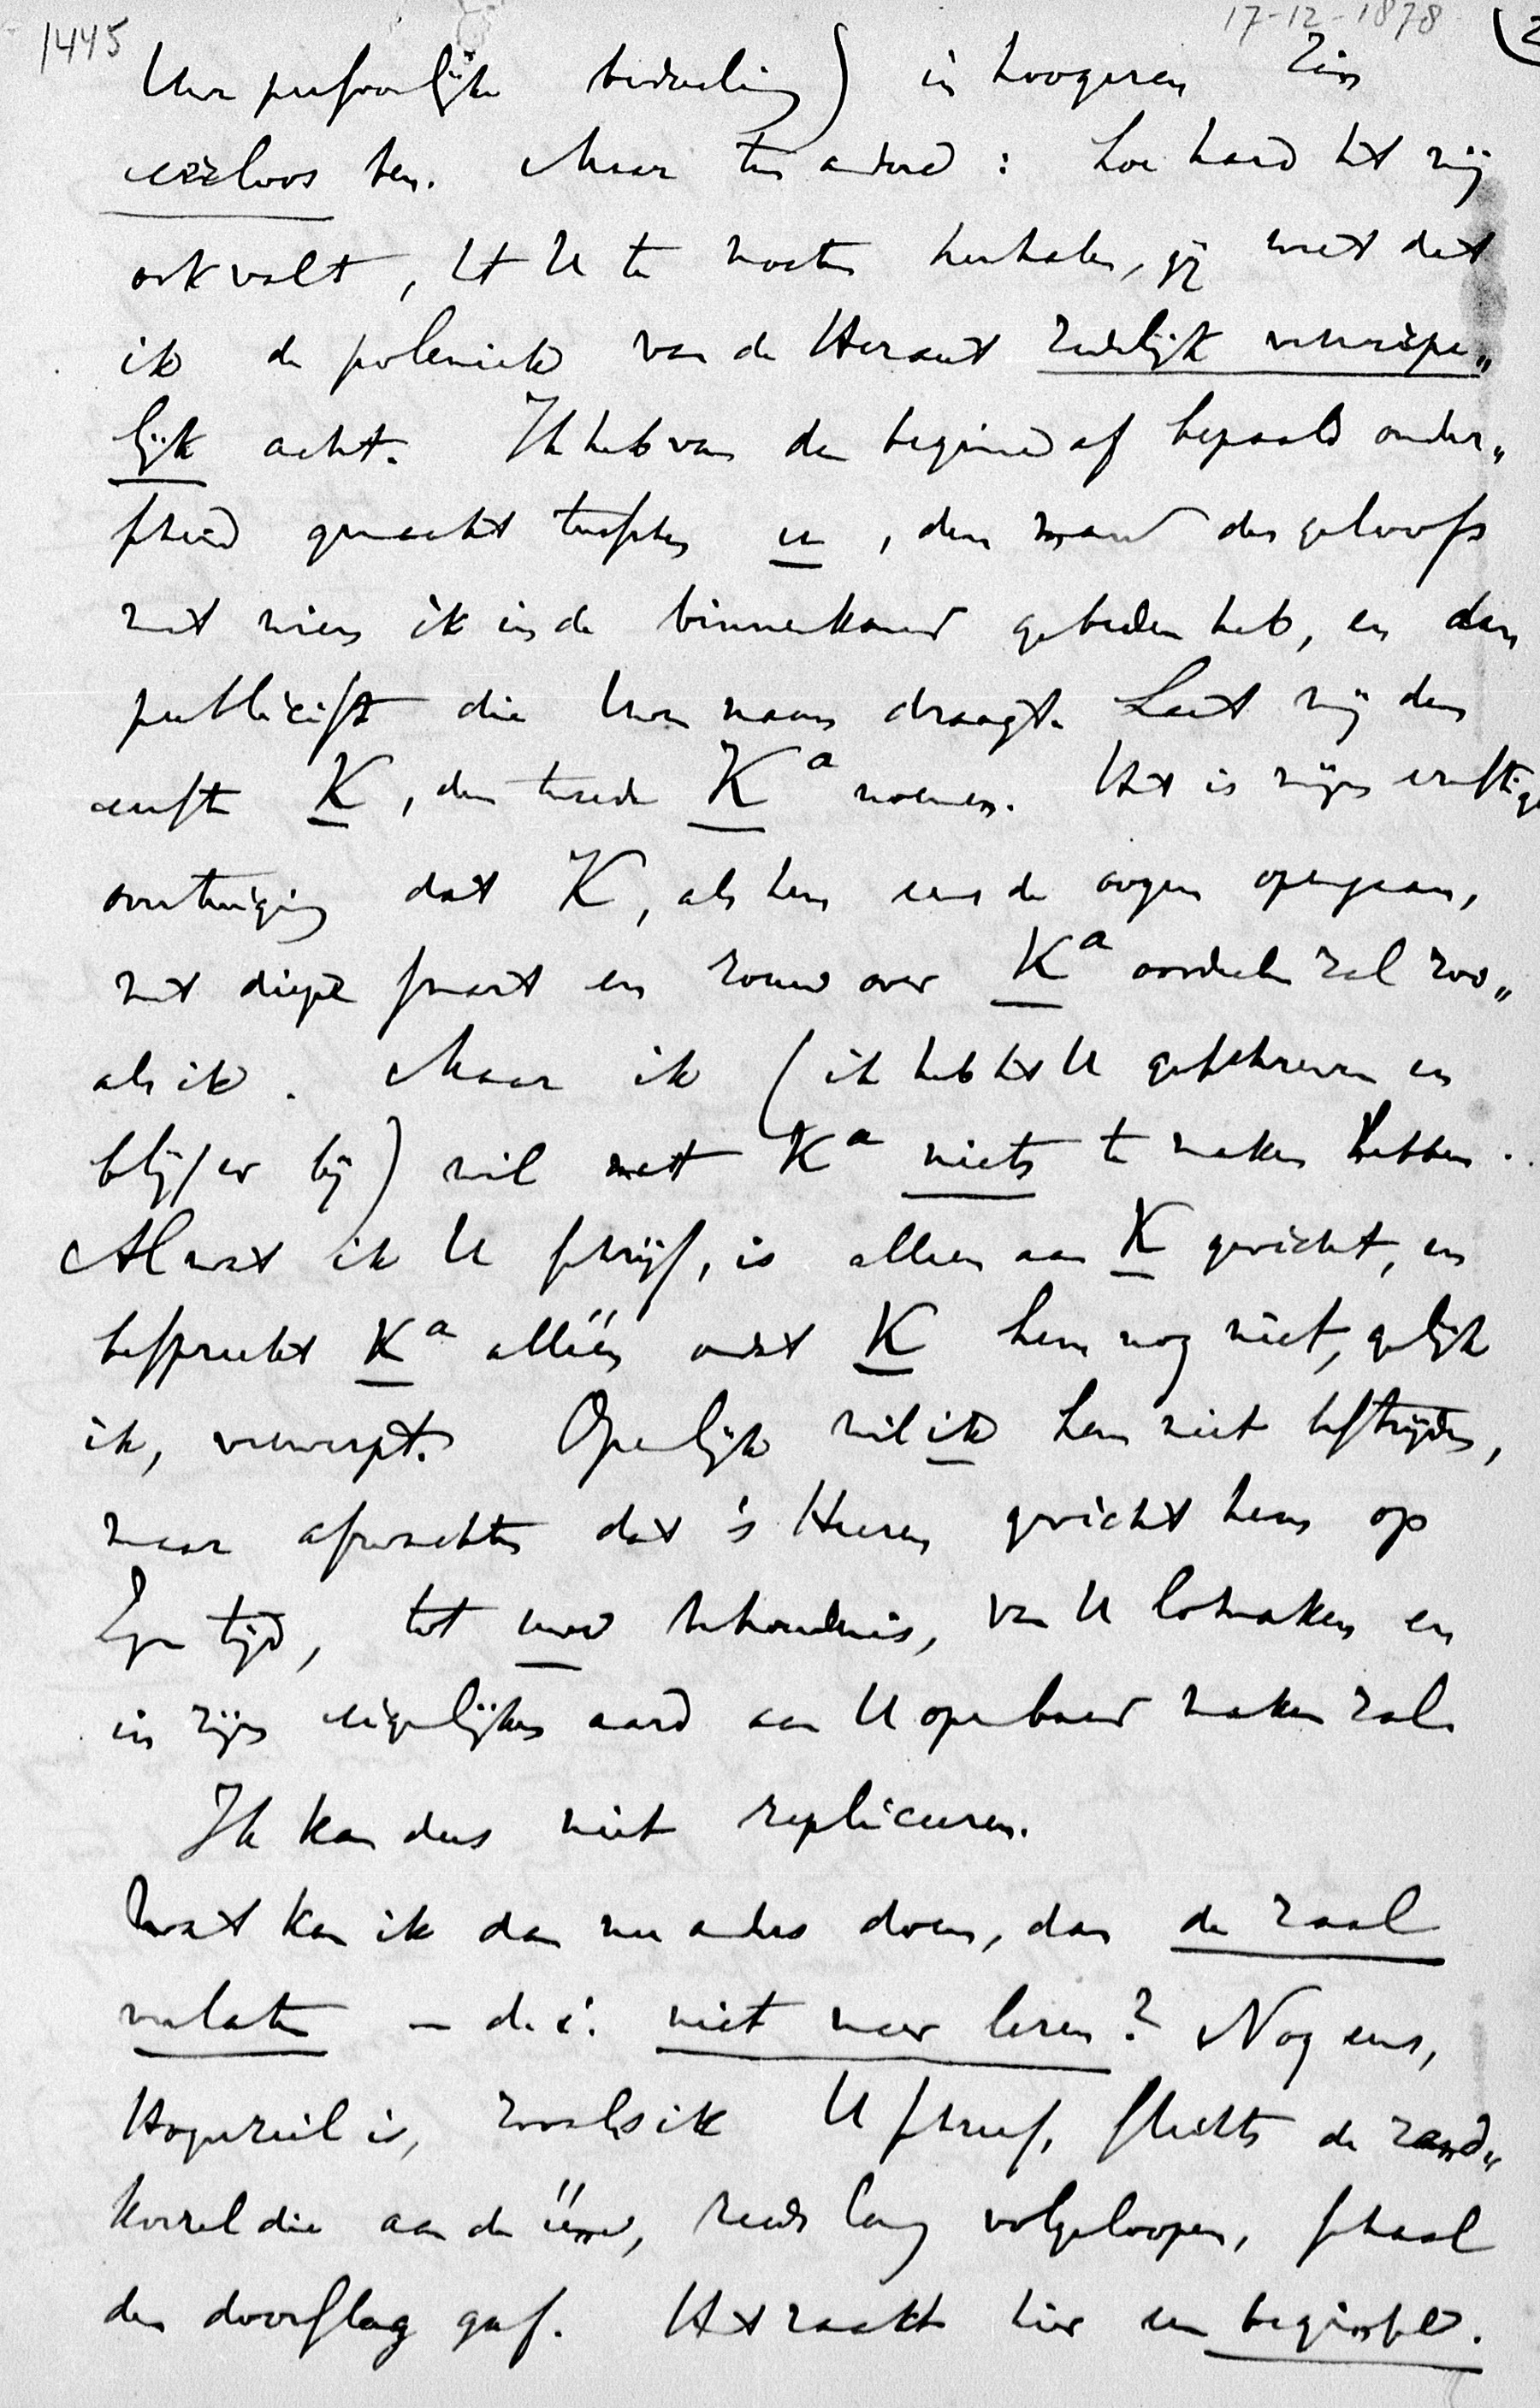 1445 17-12-1878 (2
Uwe persoonlijke bedoeling) in hoogeren zin
eerloos ben. Maar ten andere: hoe hard het mij
ook valt, het U te moeten herhalen, gij weet dat
ik de polemiek van de Heraut zedelijk verwerpe„
lijk acht. Ik heb van den beginne af bepaald onder„
scheid gemaakt tusschen u, den man des geloofs
met wien ik in de binnenkamer gebeden heb, en den
publicist die Uwen naam draagt. Laat mij den
eerste K, den tweede Kª noemen. Het is mijn ernstige
overtuiging dat K, als hem eens de oogen opengaan,
met diepe smart en rouw over Kª oordeelen zal zoo„
als ik. Maar ik (ik heb het U geschreven en
blijf er bij) wil met Kª niets te maken hebben.
Al wat ik U schrijf, is alleen aan K gericht, en
bespreekt Kª alléén omdat K hem nog niet, gelijk
ik, verwerpt. Openlijk wil ik hem niet bestrijden,
maar afwachten dat 's Heeren gericht hem op
Zijn tijd, tot uw behoudenis, van U losmaken en
in zijn eigenlijken aard aan U openbaar maken zal.
Ik kan dus niet repliceeren.
Wat kan ik dan nu anders doen, dan de zaal
verlaten – d.i. niet meer lezen? Nog eens,
Hogerzeil is, zooals ik U schreef, slechts de zand„
korrel die aan de ééne, reeds lang volgeloopen, schaal
den doorslag gaf. Het raakt hier een beginsel.